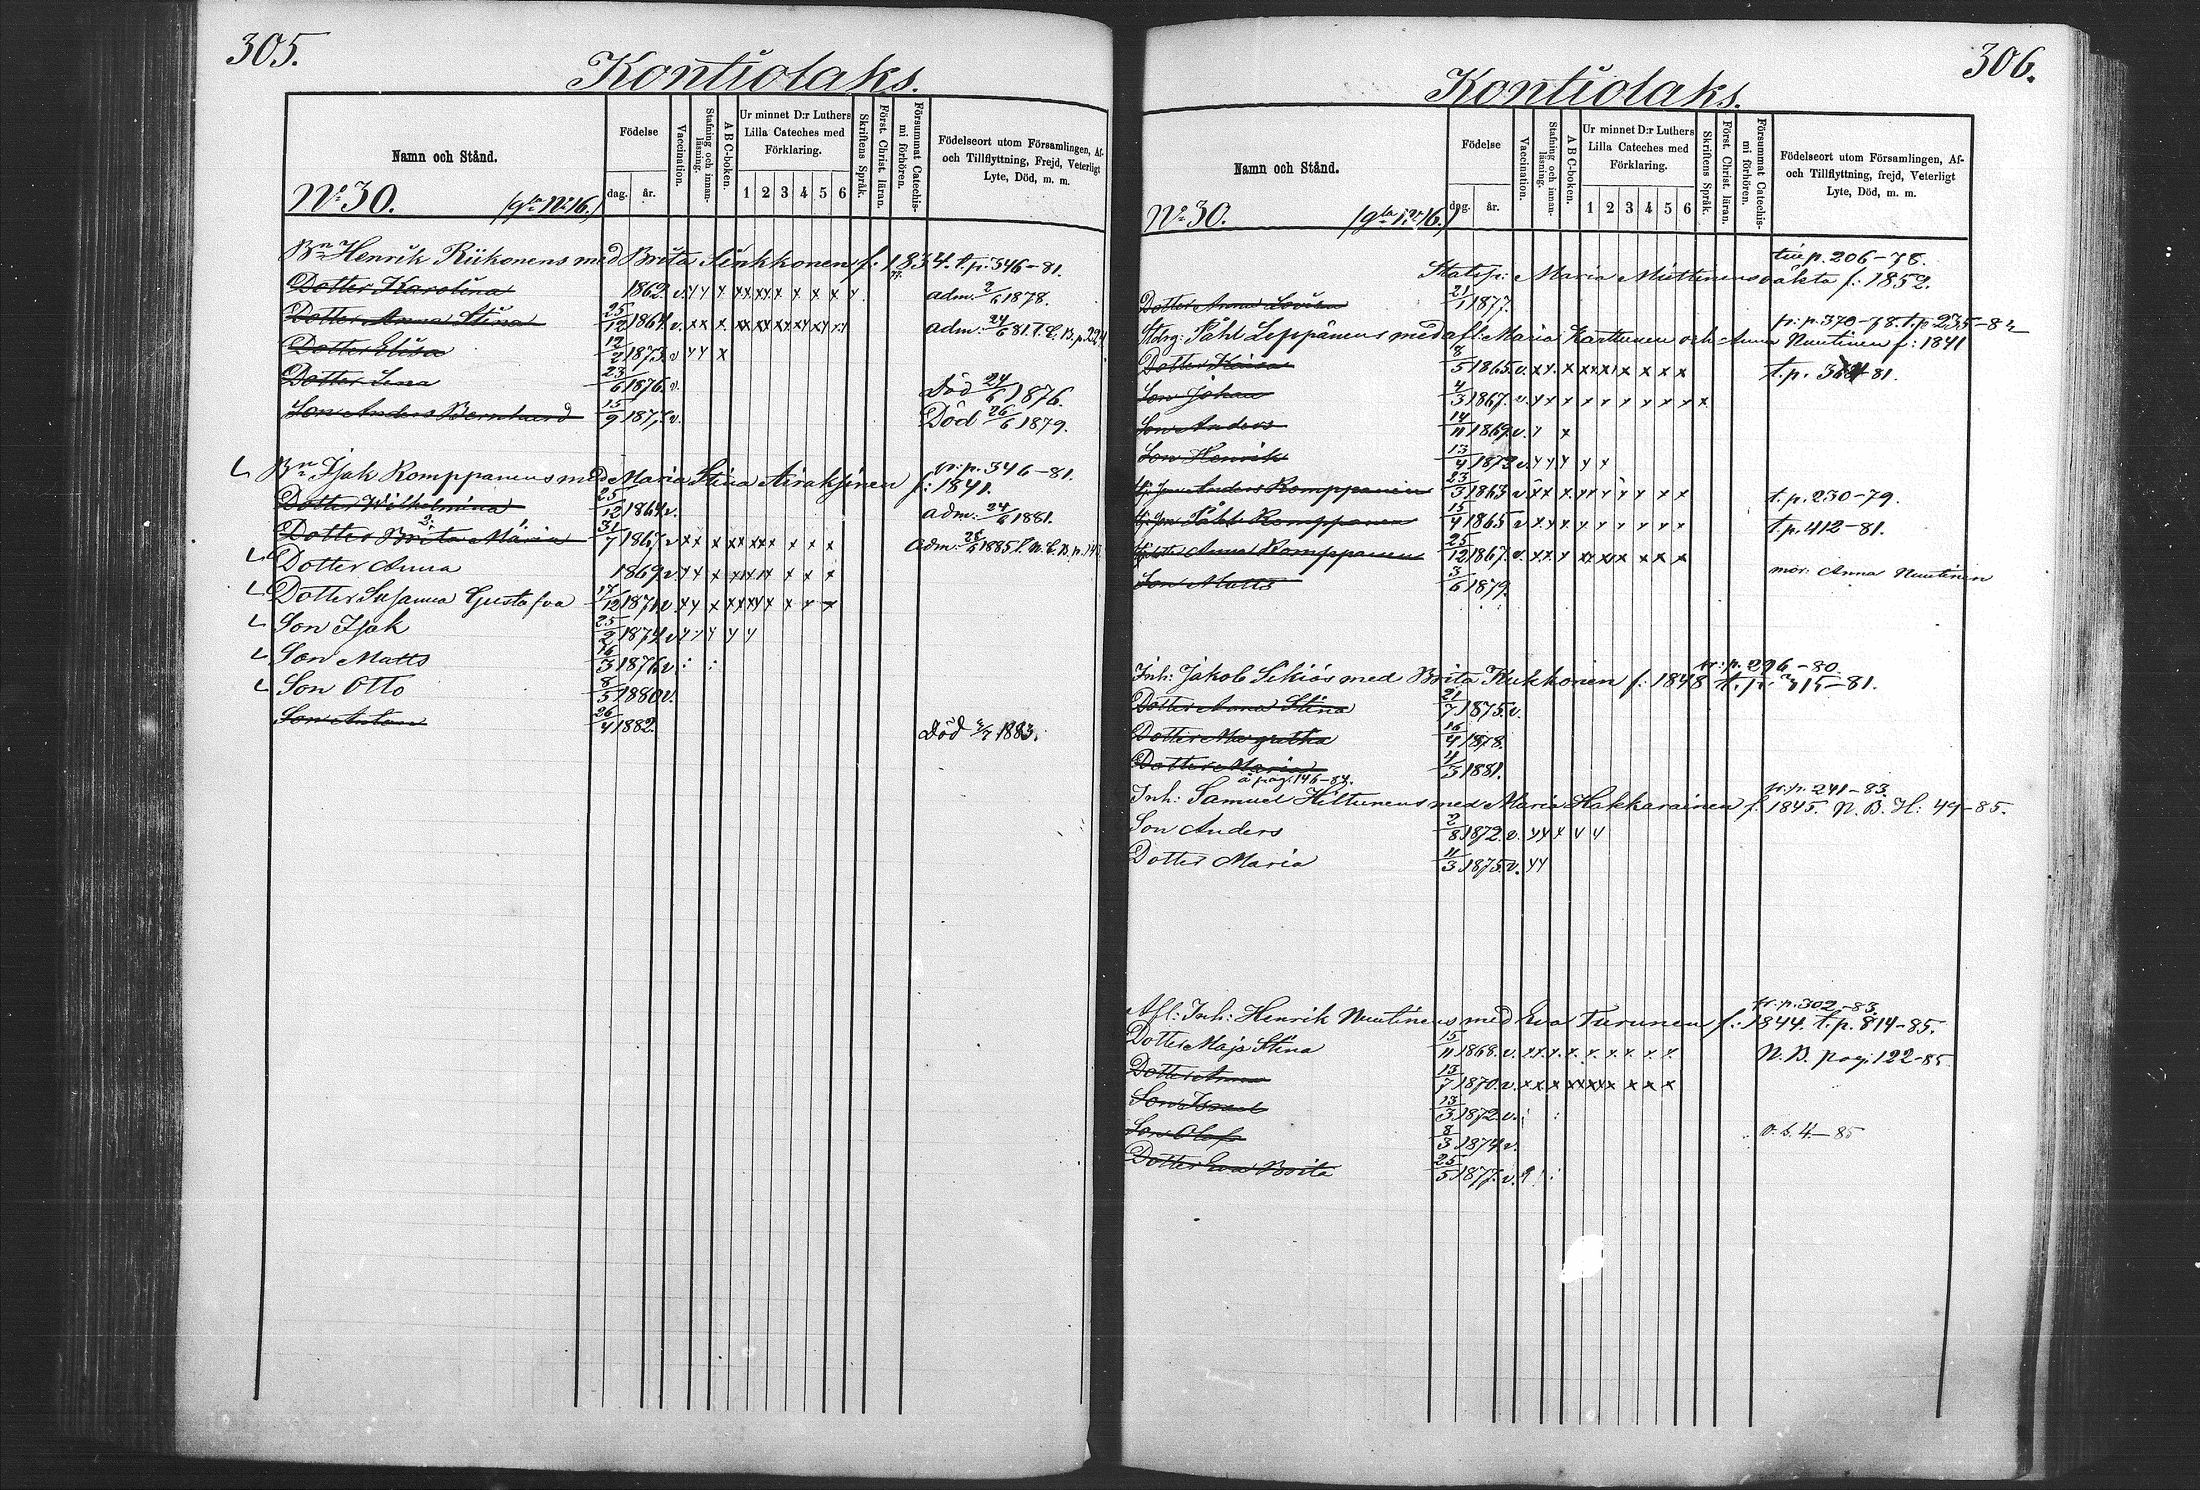 305.
Kontiolaks.
Namn och Stånd.
Födelse
dag. år.
Vaccination.
Stafning och innanläsning.
A B C-boken.
Ur minnet D:r Luthers Lilla Cateches med Förklaring.
1 2 3 4 5 6
Skriftens Språk.
Först. Christ. läran.
Försummat Catechismi förhören.
Födelseort utom Församlingen, Af- och Tillflyttning, Frejd, Veterligt Lyte, Död, m. m.
No 30. (gla No 16.)
Bn Henrik Riikonens med Brita Sinkkonen f: 1834. t. p. 346-81.
Dotter Karolina 1862. v. adm. 2/6 1878.
Dotter Anna Stina 25/12 1864 v. adm. 24/6 81.
Dotter Elisa 12/2 1873. v
Dotter Lena 23/6 1876. v. Död 24/6 1876.
Son Anders Bernhard 15/9 1877. v. Död 26/6 1879.
Bn Isak Romppanens med Maria Stina Airaksinen f: 1841. fr. p. 346-81.
Dotter Wilhelmina 25/12 1864 v. adm. 24/6 1881.
Dotter Brita Maria 31/7 1867. v adm. 28/6 1885
Dotter Anna 1869 v.
Dotter Susanna Gustafva 17/12 1871. v.
Son Isak 25/2 1874. v
Son Matts 16/3 1876 v.
Son Otto 8/5 1880 v.
Son Anton 26/4 1882. Död 1883.
306.
Kontiolaks.
Namn och Stånd.
Födelse
dag. år.
Vaccination.
Stafning och innanläsning.
A B C-boken.
Ur minnet D:r Luthers Lilla Cateches med Förklaring.
1 2 3 4 5 6
Skriftens Språk.
Först. Christ. läran.
Försummat Catechismi förhören.
Födelseort utom Församlingen, Af- och Tillflyttning, frejd, Veterligt Lyte, Död, m. m.
No 30. (gla No 16.)
p. 206-78.
Maria Miettinens oäkta f: 1852.
Dotter Anna Lovisa 21/1 1877.
fr. p. 370-78. t. p. 235-82
Påhl Leppänens med afl: Maria Karttunen och Anna Nuutinen f: 1841
Dotter Kaisa 8/5 1865. v.
Son Johan 4/3 1867. v.
Son Anders 14/11 1869. v.
Son Henrik 13/4 1873 v.
Anders Romppanen 23/3 1863 v t. p. 230-79.
Påhl Romppanen 15/4 1865 v t. p. 412-81.
Anna Romppanen 25/12 1867. v.
Son Matts 3/6 1879. mor: Anna Nuutinen
fr. p. 296-80.
Inh: Jakob Sikiös med Brita Kukkonen f: 1848 t. p. 315-81.
Dotter Anna Stina 21/7 1875. v.
Dotter Margretha 16/4 1878.
Dotter Maria 11/3 1881.
å pag. 146-84.
fr. p. 241-83.
Inh: Samuel Hiltunens med Maria Hakkarainen f. 1845. N. B. H: 49-85.
Son Anders 2/8 1872. v.
Dotter Maria 11/3 1875. v.
fr. p. 302-83.
Afl: Inh: Henrik Nuutinens med Eva Turunen f: 1844. t. p. 814-85.
Dotter Maja Stina 15/11 1868. v. N. B. pag. 122-85
Dotter Anna 13/7 1870. v.
Son Israel 13/3 1872. v.
Son Olof 8/3 1874 v.
Dotter Eva Brita 25/5 1877. v.